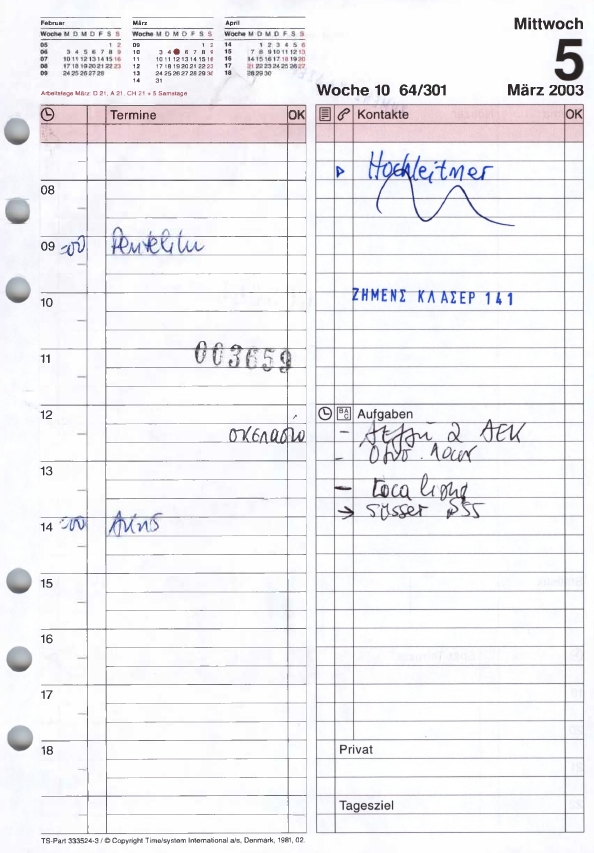 Februar
Woche M D M D F S S
05 1 2
06 3 4 5 6 7 8 9
07 10 11 12 13 14 15 16
08 17 18 19 20 21 22 23
09 24 25 26 27 28
März
Woche M D M D F S S
09 1 2
10 3 4 6 7 8 9
11 10 11 12 13 14 15 16
12 17 18 19 20 21 22 23
13 24 25 26 27 28 29 30
14 31
April
Woche M D M D F S S
14 1 2 3 4 5 6
15 7 8 9 10 11 12 13
16 14 15 16 17 18 19 20
17 21 22 23 24 25 26 27
18 28 29 30
Arbeitstage März: D 21, A 21, CH 21 + 5 Samstage
Mittwoch
5
Woche 10 64/301 März 2003
Termine OK
08
09 00
10
003659
11
12
13
14 00
15
16
17
18
Kontakte OK
Hochleitner
ΖΗΜΕΝΣ ΚΛΑΣΕΡ 141
Aufgaben
2 ΑΕΚ
→
Privat
Tagesziel
TS-Part 333524-3 / © Copyright Time/system International a/s, Denmark, 1981, 02.